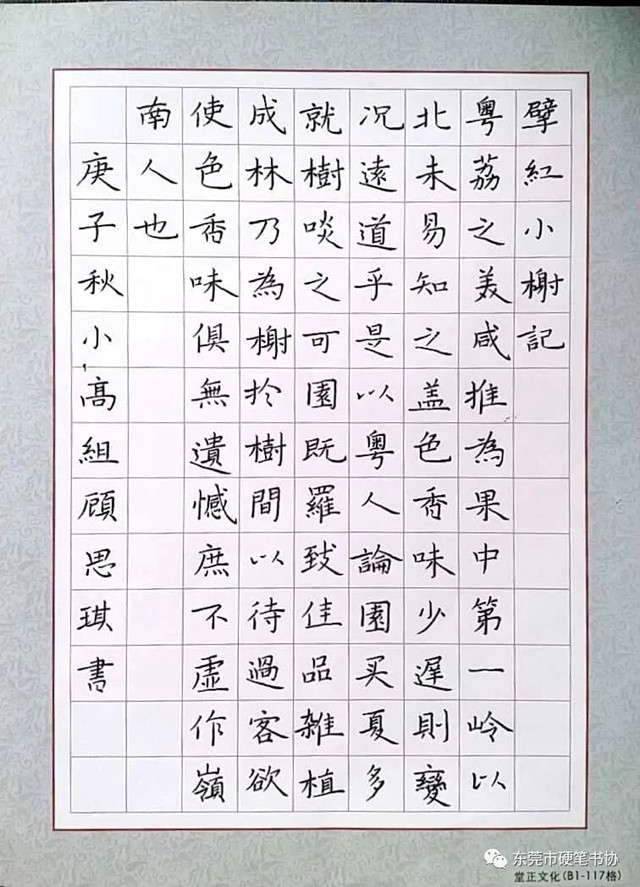 擘紅小榭記
粵荔之美咸推為果中第一岭以
北未易知之盖色香味少遅則變
况遠道乎是以粵人論園买夏多
就樹啖之可園既羅致佳品雑植
成林乃為榭扵樹間以待過客欲
使色香味俱無遺憾庶不虚作嶺
南人也
庚子秋小髙組顧思琪書
东莞市硬笔书协
堂正文化(B1-117格)